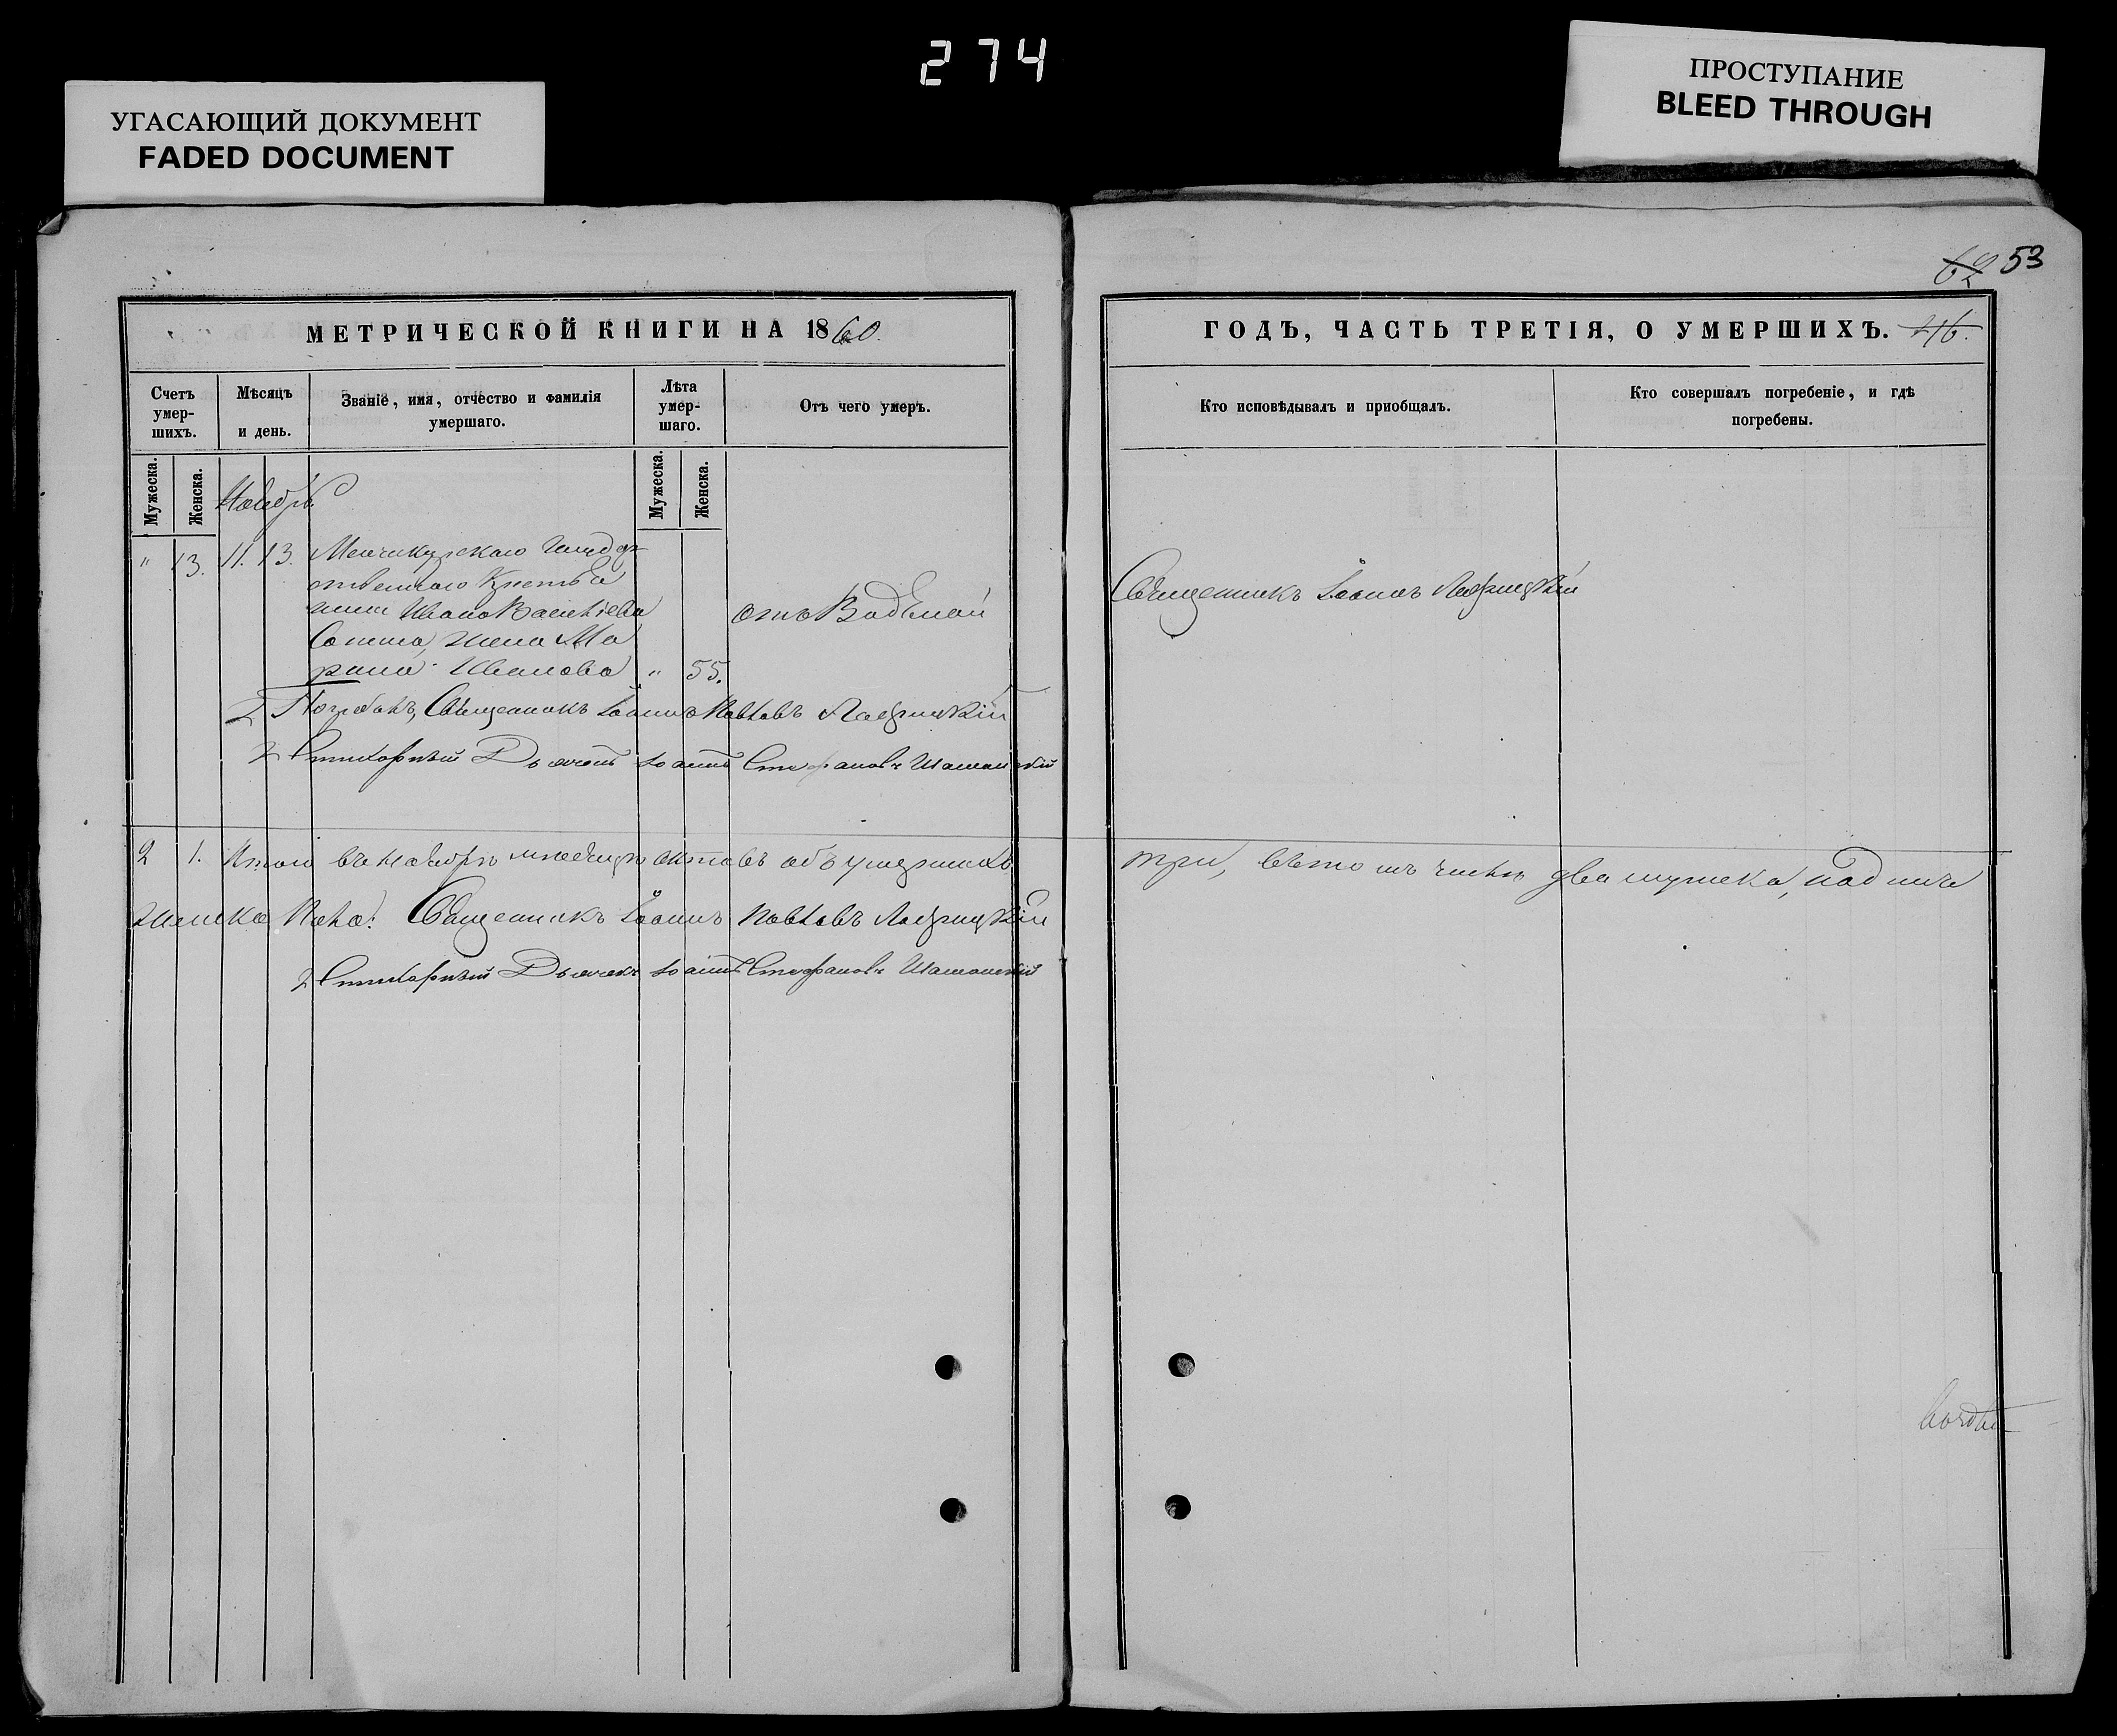 274
УГАСАЮЩИЙ ДОКУМЕНТ
FADED DOCUMENT
ПРОСТУПАНИЕ
BLEED THROUGH
62 53
МЕТРИЧЕСКОЙ КНИГИ НА 1860.
ГОДЪ, ЧАСТЬ ТРЕТІЯ, О УМЕРШИХЪ.
Счетъ умер-шихъ.
Мѣсяцъ и день.
Званіе, имя, отчество и фамилія умершаго.
Лѣта умер-шаго.
Отъ чего умеръ.
Кто исповѣдывалъ и приобщалъ.
Кто совершалъ погребеніе, и гдѣ погребены.
Мужеска.
Женска.
Ноябрь
Мужеска.
Женска.
" 13. 11. 13. Менчикурскаго Государ
ственнаго Крестья
нина Ивана Васильева
жена Ма
рина Иванова " 55.
отъ Водяной
Священникъ Іоаннъ
Священникъ Іоаннъ Павловъ
Стихарный Дьячекъ Іоаннъ Стефановъ
2 1. Итого въ ноябрѣ мѣсяцѣ актовъ объ умершихъ
три, въ томъ числѣ два мужска, одинъ
женска пола: Священникъ Іоаннъ Павловъ
Стихарный Дьячекъ Іоаннъ Стефановъ